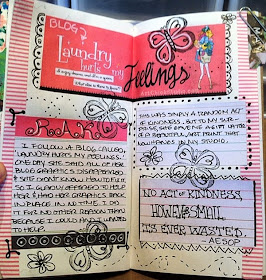 BLOG?
Laundry
hurts my
Feelings
R.A.K.
I FOLLOW A BLOG CALLED,
'LAUNDRY HURTS MY FEELINGS.'
ONE DAY SHE SAID ALL OF HER
BLOG GRAPHICS DISAPPEARED
& SHE DIDN'T KNOW HOW TO FIX IT
SO I GLADLY OFFERED TO HELP
HER & HAD HER GRAPHICS BACK
IN PLACE IN NO TIME. I DID
IT FOR NO OTHER REASON THAN
BECAUSE I COULD AND I WANTED
TO HELP.
THIS WAS SIMPLY A RANDOM ACT
OF KINDNESS, BUT TO MY SURPRISE
SHE GAVE ME A GIFT OF
A BEAUTIFUL ART PRINT THAT
NOW HANGS IN MY STUDIO.
NO ACT OF KINDNESS,
HOWEVER SMALL,
IS EVER WASTED.
AESOP